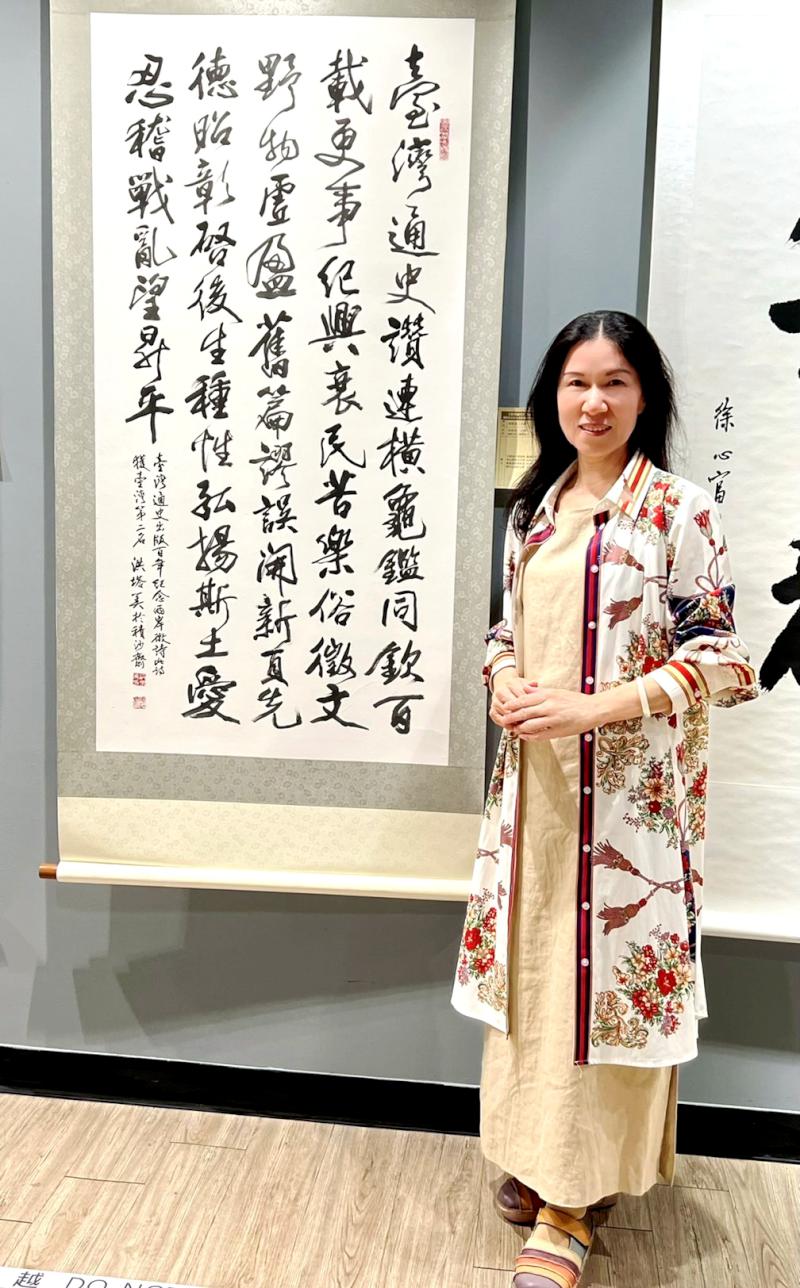 臺灣通史讚連橫龜鑑同欽百
載更事紀興衰民苦樂俗徵文
野物虛盈舊篇謬誤開新頁先
德貽彰啓後生種性弘揚斯土愛
忍稽戰亂望昇平
臺灣通史出版百年紀念兩岸徵詩此詩
獲臺灣第二名 洪塔美於積沙齋
徐心富
越 DO